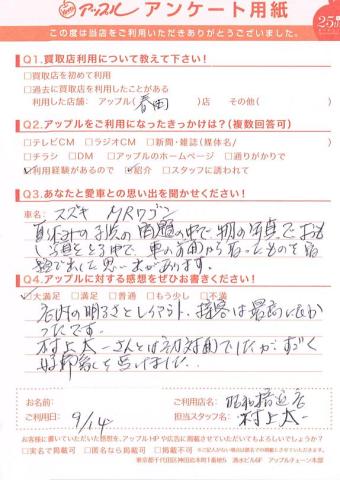 アップル アンケート用紙
25th
この度は当店をご利用いただきありがとうございました。
Q1.買取店利用について教えて下さい!
□買取店を初めて利用
□過去に買取店を利用したことがある
利用した店舗:アップル(春日)店 その他( )
Q2.アップルをご利用になったきっかけは?(複数回答可)
□テレビCM □ラジオCM □新聞・雑誌(媒体名/ )
□チラシ □DM □アップルのホームページ □通りがかりで
☑利用経験があるので ☑紹介 □スタッフに誘われて
Q3.あなたと愛車との思い出を聞かせください!
車名: スズキ MRワゴン
夏休みの子供の宿題の中で
車の
思い出があります。
Q4.アップルに対する感想をぜひお書きください!
☑大満足 □満足 □普通 □もう少し □不満
店内の明るさとレイアウト、接客は最高によか
ったです。
村上太一さんとは初対面でしたが、すごく
お名前: ご利用店名: 昭和橋通店
ご利用日: 9/14 担当スタッフ名: 村上太一
お客様に書いていただいた感想を、アップルHPや広告に掲載させていただいてもよろしいでしょうか?
□実名で掲載可 □匿名なら掲載可 □掲載不可 ※ご記入がない場合は匿名での掲載とさせていただきます。
東京都千代田区神田岩本町1番地5 清水ビル6F アップルチェーン本部